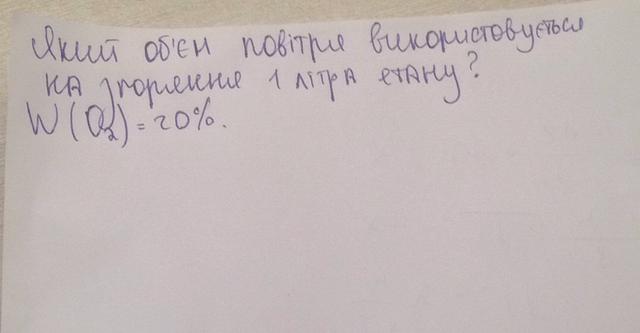 Який об'єм повітря використовується
на згорання 1 літра етану?
W(O₂) = 20%.